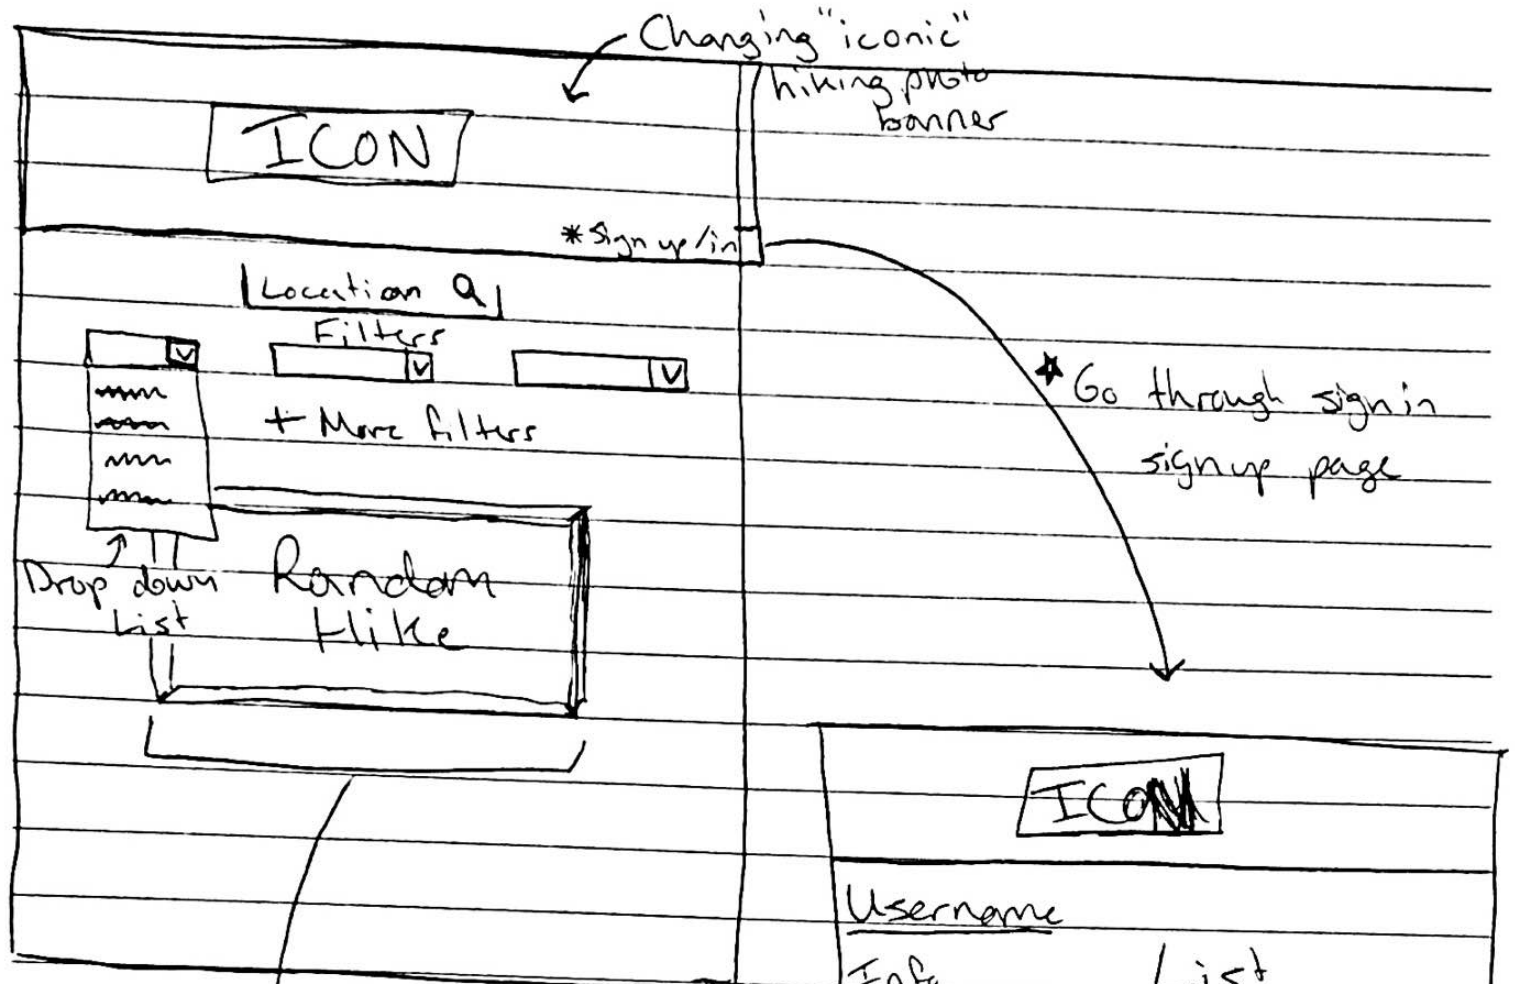 Changing "iconic"
hiking photo
banner
ICON
*Sign up/in
Location
Filters
+ More filters
Drop down
List
Random
Hike
Go through sign in
sign up page
ICON
Username
Info
List